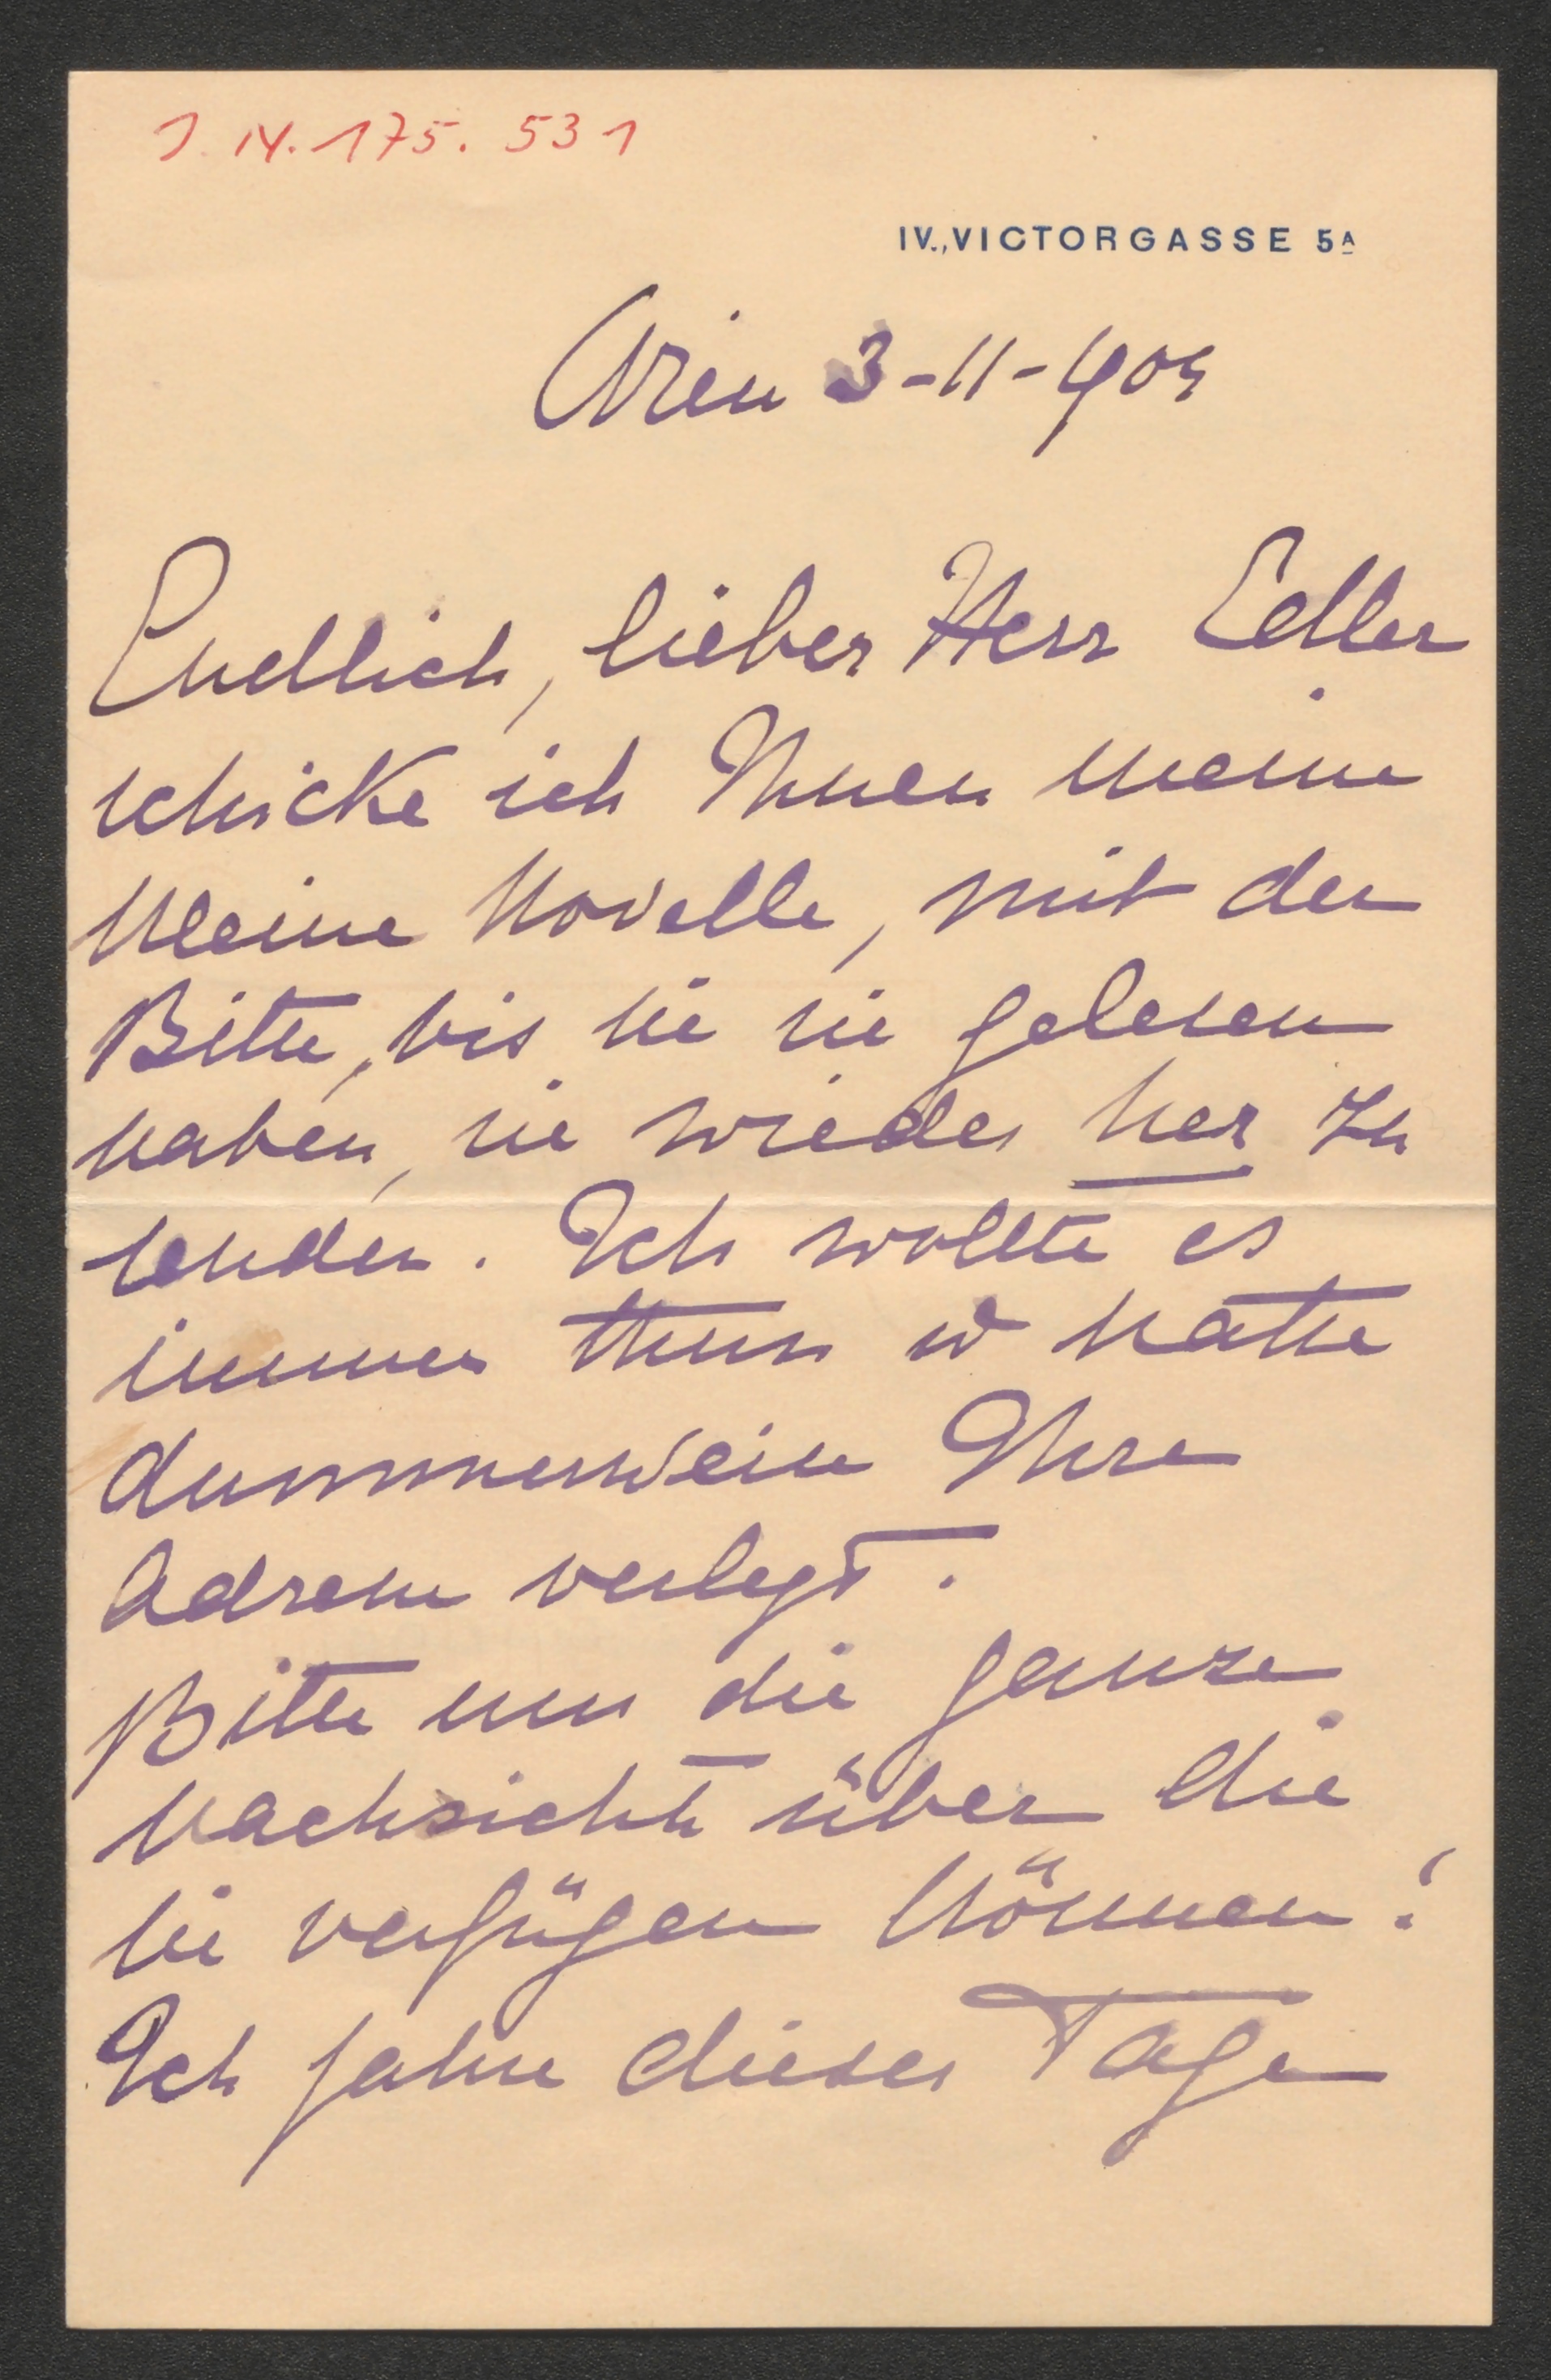 J. N. 175.531
IV., VICTORGASSE 5A
Wien 3-11-904
Endlich, lieber Herr Edler
schicke ich Ihnen meine
kleine Novelle, mit der
Bitte, bis Sie sie gelesen
haben, sie wieder her zu
senden. Ich wollte es
immer thun u hatte
dummerweise Ihre
Adresse verlegt.
Bitte um die ganze
Nachsicht über die
Sie verfügen können!
Ich fahre dieser Tage